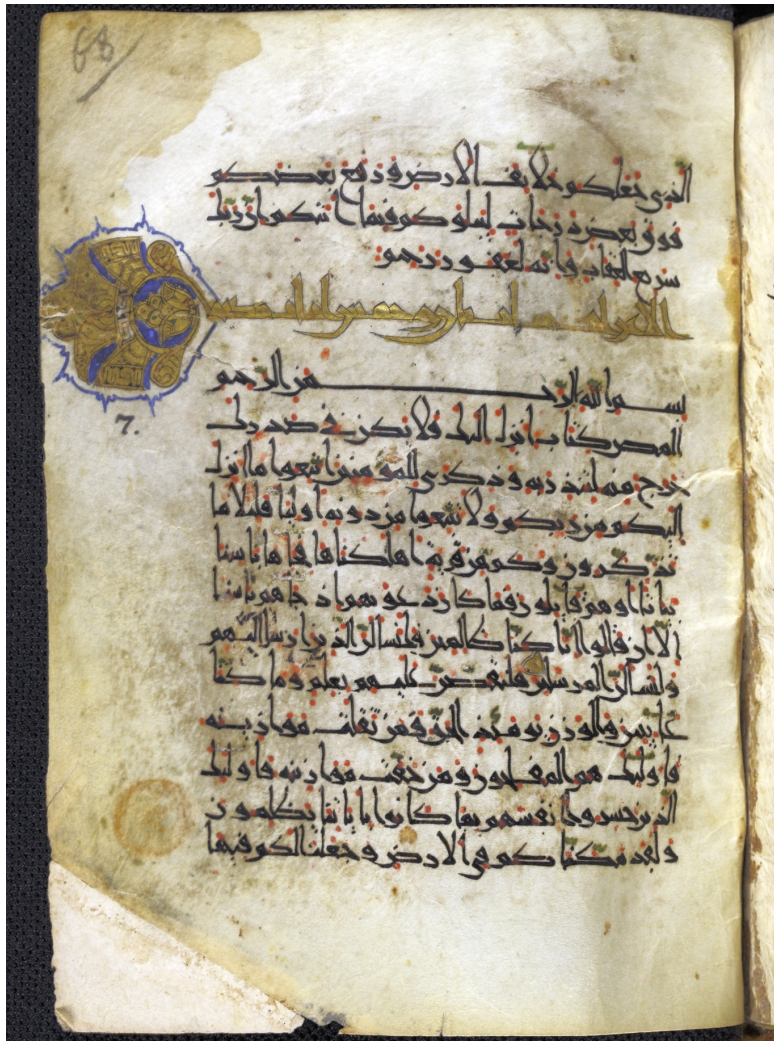 68
الذي جعلكم خلايف الارض ورفع بعضكم
فوق بعض درجات ليبلوكم فيما اتيكم ان ربك
سريع العقاب وانه لغفور رحيم
الاعراف
بسم الله الرحمن الرحيم
7.
المص كتاب انزل اليك فلا يكن في صدرك
حرج منه لتنذر به وذكرى للمومنين اتبعوا ما انزل
اليكم من ربكم ولا تتبعوا من دونه اوليا قليلا ما
تذكرون وكم من قرية اهلكناها فجاها باسنا
بياتا او هم قايلون فما كان دعويهم اذ جاهم باسنا
الا ان قالوا انا كنا ظالمين فلنسلن الذين ارسل اليهم
ولنسلن المرسلين فلنقصن عليهم بعلم وما كنا
غايبين والوزن يوميذ الحق فمن ثقلت موازينه
فاوليك هم المفلحون ومن خفت موازينه فاوليك
الذين خسروا انفسهم بما كانوا باياتنا يظلمون
ولقد مكناكم في الارض وجعلنا لكم فيها